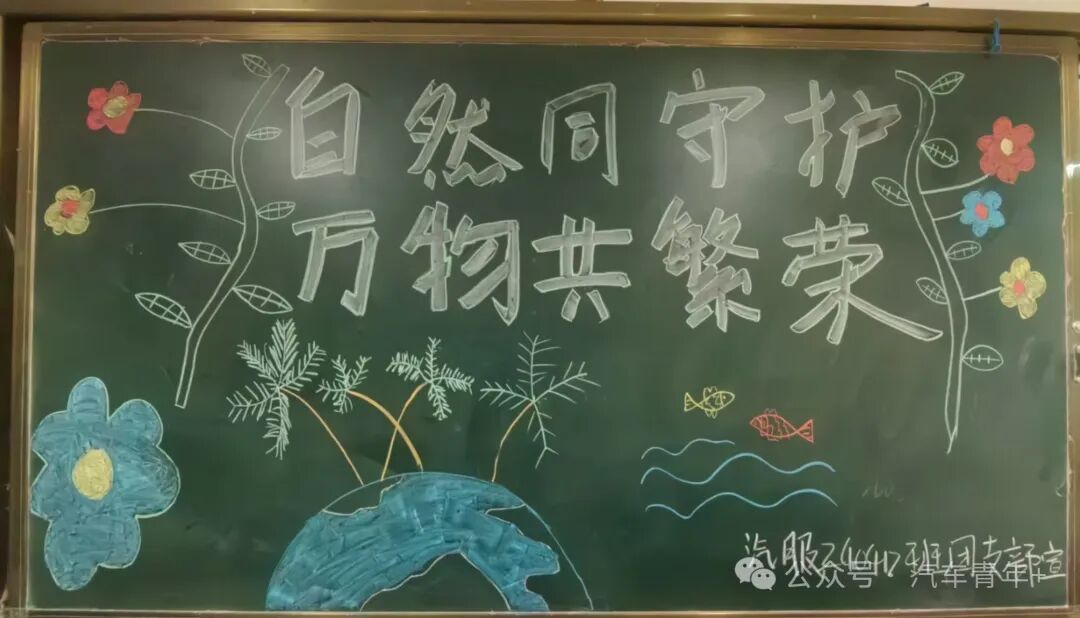 自然同守护
万物共繁荣
汽服 班团支部宣
公众号 汽车青年